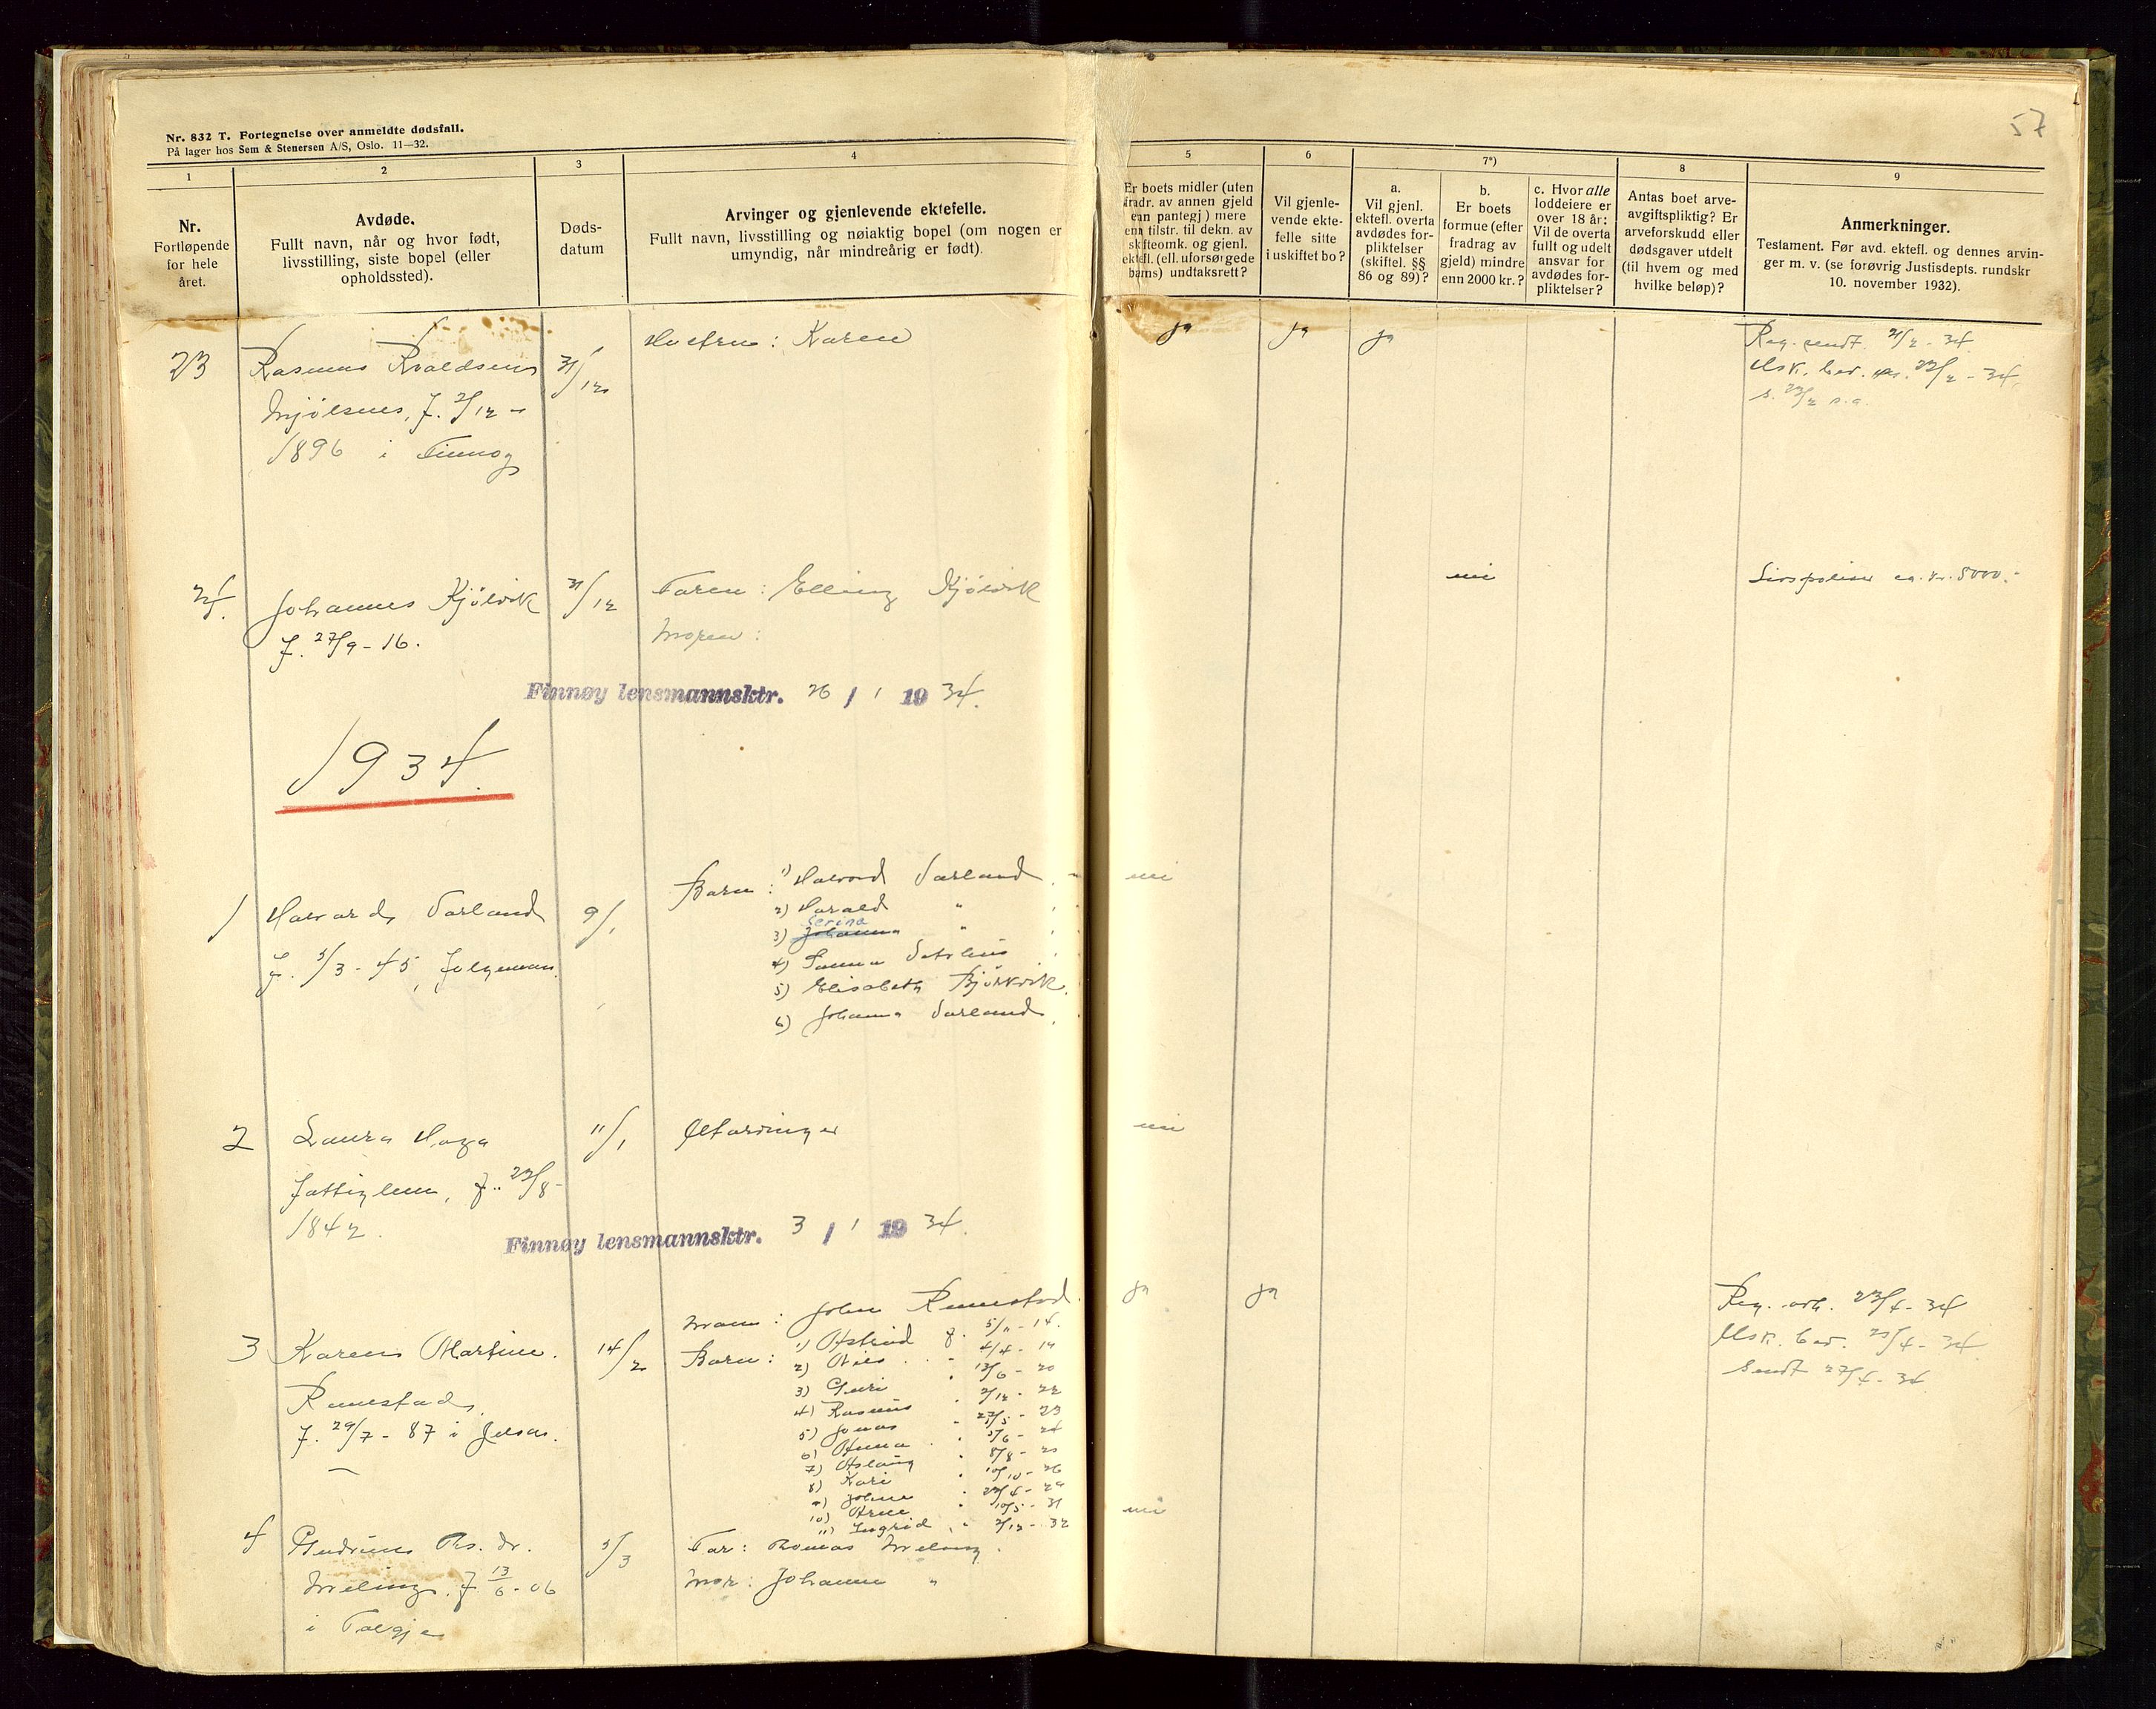 57
Nr. 832 T. Fortegnelse over anmeldte dødsfall.
På lager hos Sem & Stenersen A/S, Oslo. 11—32.
1 2 3 4 5 6 7*) 8 9
Nr.
Fortløpende
for hele
året.
Avdøde.
Fullt navn, når og hvor født,
livsstilling, siste bopel (eller
opholdssted).
Døds-
datum
Arvinger og gjenlevende ektefelle.
Fullt navn, livsstilling og nøiaktig bopel (om nogen er
umyndig, når mindreårig er født).
Er boets midler (uten
fradr. av annen gjeld
enn pantegj) mere
enn tilstr. til dekn. av
skifteomk. og gjenl.
ektefl. (ell. uforsørgede
barns) undtaksrett?
Vil gjenle-
vende ekte-
felle sitte
i uskiftet bo?
a.
Vil gjenl.
ektefl. overta
avdødes for-
pliktelser
(skiftel. §§
86 og 89)?
b.
Er boets
formue (efter
fradrag av
gjeld) mindre
enn 2000 kr.?
c. Hvor alle
loddeiere er
over 18 år:
Vil de overta
fullt og udelt
ansvar for
avdødes for-
pliktelser?
Antas boet arve-
avgiftspliktig? Er
arveforskudd eller
dødsgaver utdelt
(til hvem og med
hvilke beløp)?
Anmerkninger.
Testament. Før avd. ektefl. og dennes arvin-
ger m. v. (se forøvrig Justisdepts. rundskr
10. november 1932).
23 Rasmus Roaldsen 31/12 Hustru: Karen ja ja ja
Mjølsnes, f. 2/12 -
1896 i Finnøy
Reg. sendt 21/2 - 34
Usk. bev. 22/2 - 34
s. 23/2 s.a.
24. Johannes Kjølvik 31/12 Faren: Elling Kjølvik nei Livspolise ca. kr. 5000.-
f. 27/9 - 16. Moren:
Finnøy lensmannsktr. 26 / 1 19 34.
1934.
1 Halvard Varland 9/1 Barn: 1) Halvard Varland nei
f. 5/3 - 45, Folgemann
2) Harald "
3) Serina "
4) Sanna
5) Elisabeth Bjørkvik
6) Johanna Varland
2 Laura Haga 11/1 Utarvinger nei
fattiglem, f. 22/8 -
1842.
Finnøy lensmannsktr. 3 / 1 19 34.
3 Karen Martine 14/2 Mann: John Ramestad. ja ja
Ramestad,
f. 29/7 - 87 i Jelsa.
Barn: 1) Astrid f. 5/11 - 14.
2) Nils 4/4 -
3) Guri 12/6 - 20
4) Rasmus 2/12 - 22
5) Jonas - 23
6) Anna - 24
7) Aslaug 8/8 - 25
8) Kari 10/10 - 26
9) 22/4 - 29
10) Arne 10/5 - 31
11) Ingrid 2/12 - 32
Reg. 23/4 - 34
Usk. bev. 25/4 - 34
Sendt 27/4 - 34
4 Gudrun Ths. dr. 5/3 Far: Thomas Meling. nei
Meling, f 13/6 - 06 Mor: Johanne "
i Talgje